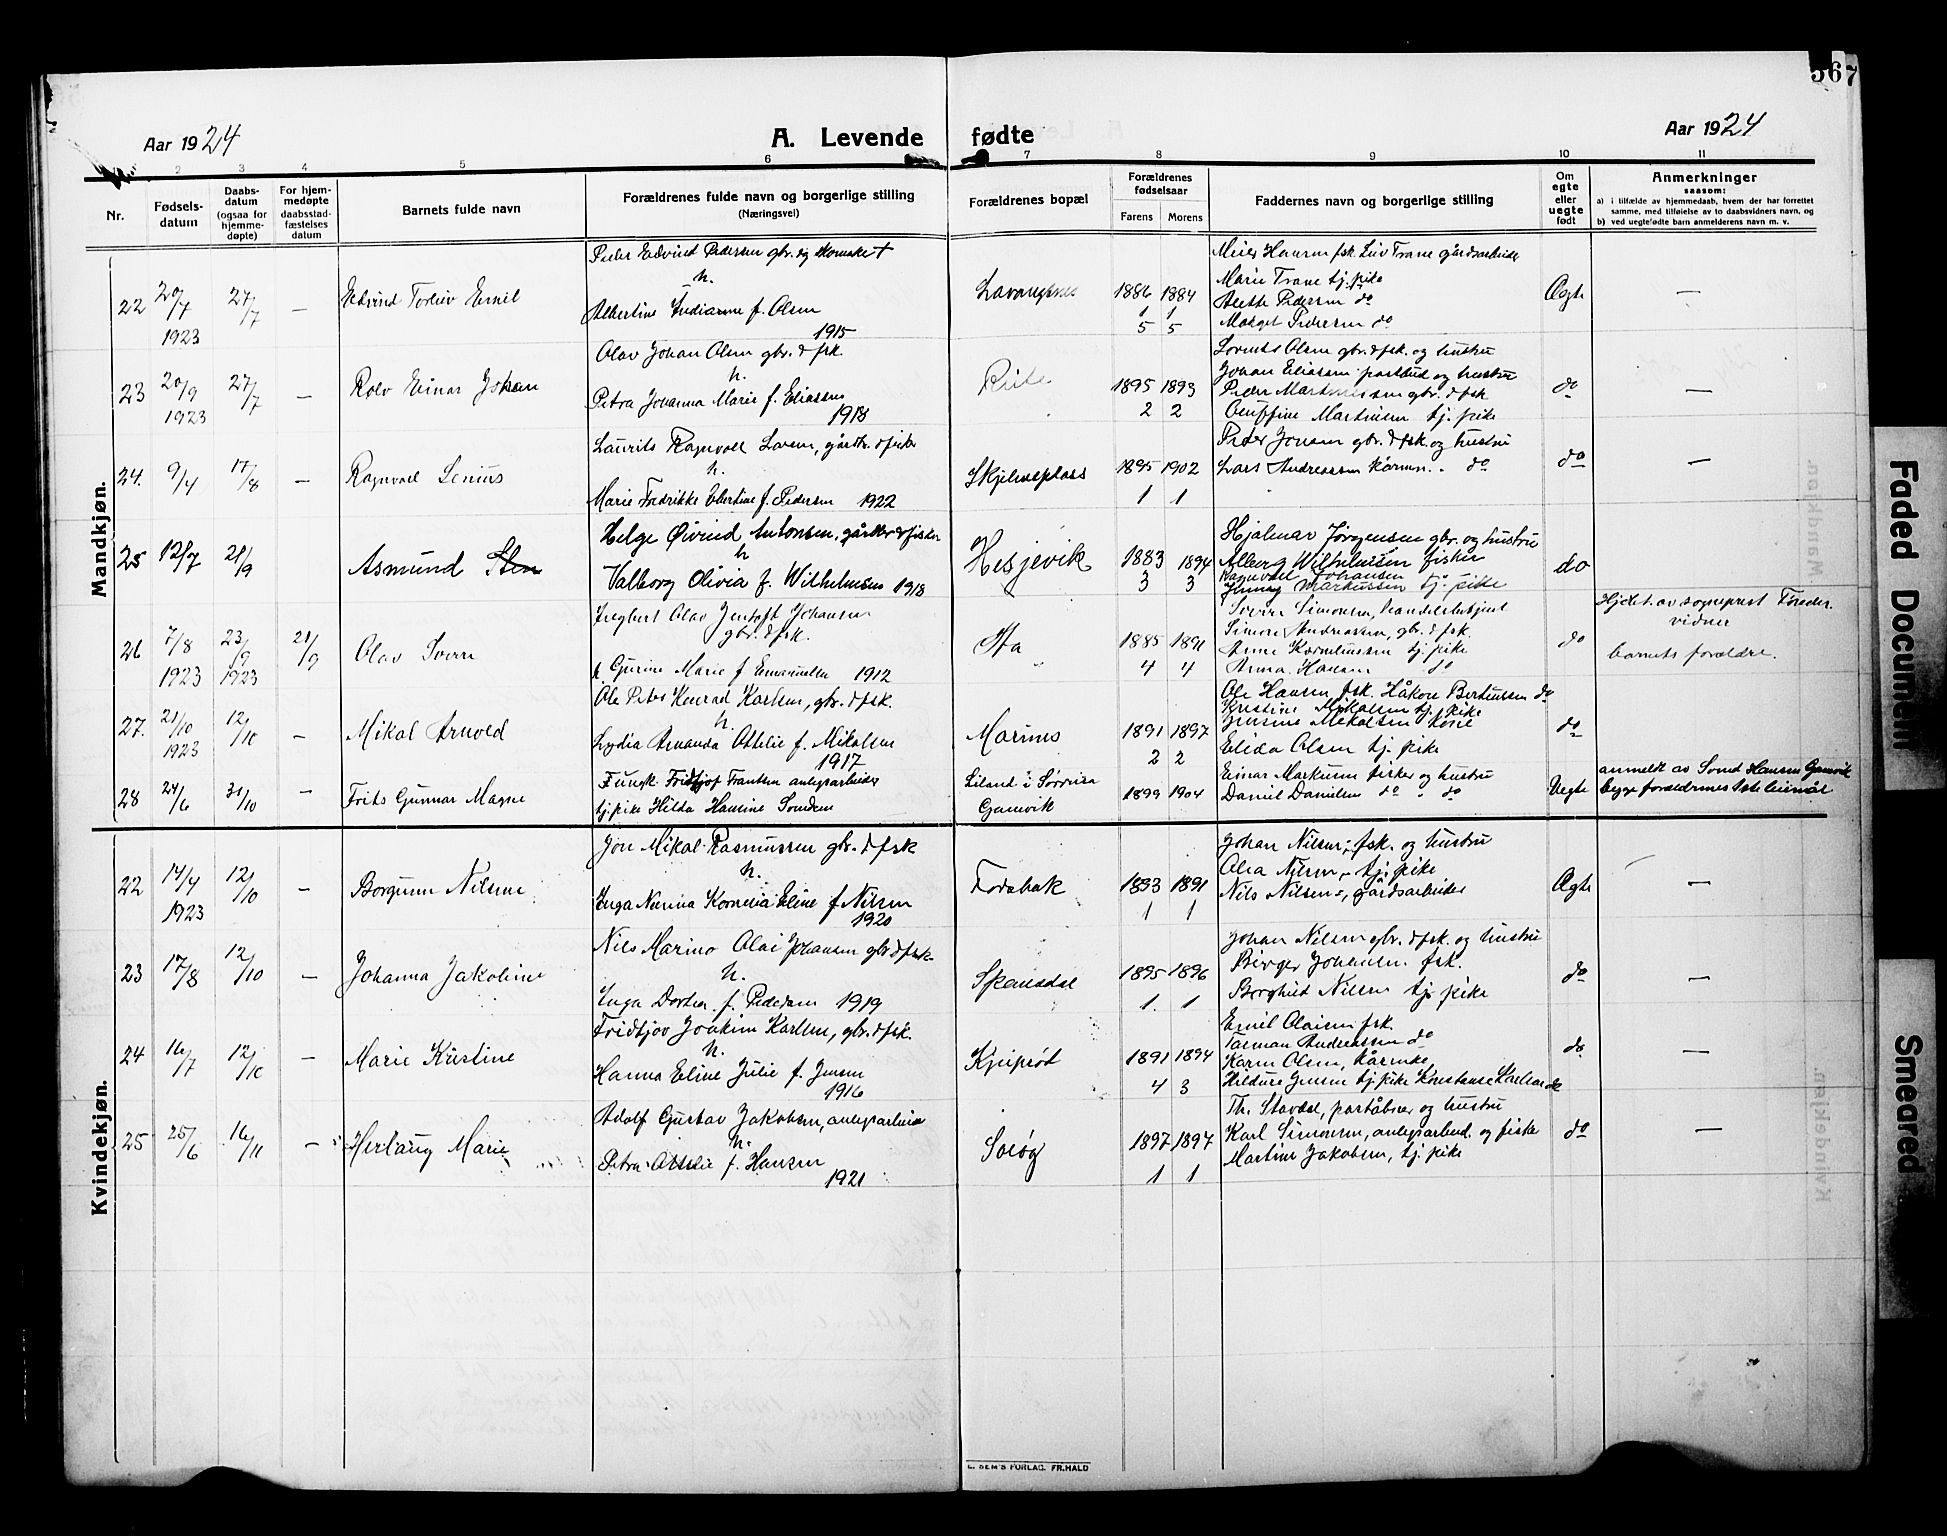 567
Aar 1924
A. Levende fødte
Aar 1924
2 3 4 5 6 7 8 9 10 11
Nr.
Fødsels-
datum
Daabs-
datum
(ogsaa for
hjemme-
døpte)
For hjem-
medøpte
daabsstad-
fæstelses
datum
Barnets fulde navn
Forældrenes fulde navn og borgerlige stilling
(Næringsvei)
Forældrenes bopæl
Forældrenes
fødselsaar
Farens Morens
Faddernes navn og borgerlige stilling
Om
egte
eller
uegte
født
Anmerkninger
saasom:
a) i tilfælde av hjemmedaab, hvem der har forrettet
samme, med tilføielse av to daabsvidners navn, og
b) ved uegtefødte barn anmelderens navn m. v.
Mandkjøn.
22 20/7 1923 27/7 —
Edvind Torleiv Emil
Peder Edvind Pedersen gbr. og
h.
Albertine f. Olsen
1915
1886 1884
1 1
5 5
Meier Hansen fsk. Leiv Trane gårdsarbeider
Marie Trane tj. pike
Alette Pedersen do
Marget Pedersen do
Ægte
—
23 20/9 1923 27/7 —
Rolv Einar Johan
Olav Johan Olsen gbr. & fsk.
h.
Petra Johanna Marie f. Eliassen
1918
1895 1893
2 2
Lorents Olsen gbr. & fsk. og hustru
Johan Eliassen postbud og hustru
Peder Martinessen gbr. & fsk
Martinsen tj. pike
do
—
24. 9/4 17/8 —
Ragnvald Senius
Laurits Ragnvall Larsen, gårdbr. & fisker
h.
Marie Fredrikke Elertine f. Pedersen 1922
Skjelnesplass
1895 1902
1 1
Peder Jonsen gbr. & fsk. og hustru
Lars Andreassen Kårmn. " do
do
—
25 12/7 21/9
Asmund Sten
Helge Øivind Antonsen, gårdbr & fisker
h
Valborg Olivia f. Wilhelmsen 1918
Hesjevik
1883 1894
3 3
Hjalmar Jørgensen gbr. og hustru
Alberg Wilhelmsen fisker
Ragnvald Johansen
Jenny Markussen tj. pike
do
26 7/8 1923 23/9 1923 21/9
Olav Sverre
Olav Johansen
gbr. & fsk.
h. Gurine Marie f. Emanuelsen 1912
1885 1891
4 4
Sverre Simonsen, handelsbetjent
Simon Andreassen, gbr. & fsk.
Anne Kornelinssen tj. pike
Anna Hansen do
do
Hjdøt. av sogneprest
vidner
barnets forældre.
27. 21/10 1923 12/10 —
Mikal Arnold
Ole Peter Konrad Karlsen, gbr. & fsk.
h
Lydia Amanda Ottelie f. Mikalsen
1917
1891 1897
2 2
Ole Hansen fsk. Håkon Bertinssen do
Kristine Mikalsen tj. pike
Jensine Mikalsen
Elida Olsen tj. pike
do
28 24/6 31/10 —
Frits Gunnar Magne
Fridtjof Frantsen anlegsarbeider
tj. pike Hilda Hansine
Leland i Sørreisa
Gamvik
1899 1904
Einar Markussen fisker og hustru
Daniel Danielsen do " do
Uegte
anmeldt av Hansen Gamvik
begge forældrenes 1ste leiermål
Kvindekjøn.
22 14/4 1923 12/10 —
Borgunn Nilsine
Jon Mikal Rasmussen gbr. & fsk
h.
Inga Nerina Kornelia Eline f. Nilsen
1920
Forabak
1893 1891
1 1
Johan Nilsen, fsk. og hustru
Olea Nilsen, tj. pike
Nils Nilsen, gårdsarbeider
Ægte
—
23 17/8 12/10 —
Johanna Jakobine
Nils Marino Olai Johansen gbr & fsk.
h.
Inga Dortea f. Pedersen 1919
Spansdal
1895 1896
1. 1
Johan Nilsen gbr. & fsk. og hustru
Birger Johansen. fsk.
Borghild Nilsen tj. pike
do
—
24 16/7 12/10 —
Marie Kristine
Fridtjov Joakim Karlsen, gbr. & fsk.
h.
Hanna Eline Julie f. Jensen
1916
Kjeiprød
1891 1894
4 3
Emil Olaisen fsk.
Torman Andreassen do
Karen Olsen, kårenke,
Hildur Jensen tj. pike Konstanse Karlsen do
do
—
25 25/6 16/11 —
Herlaug Marie
Adolf Gustav Jakobsen, anlegsarbeider
h.
Petra Ottelie f. Hansen
1921
1897 1897
1 1
Th. Stavdal, poståbner og hustru
Karl Simonsen, anlegsarbeid. og fisker
Martine Jakobsen, tj. pike
do
—
E. SEM'S FORLAG. FR.HALD
Faded Document
Smeared